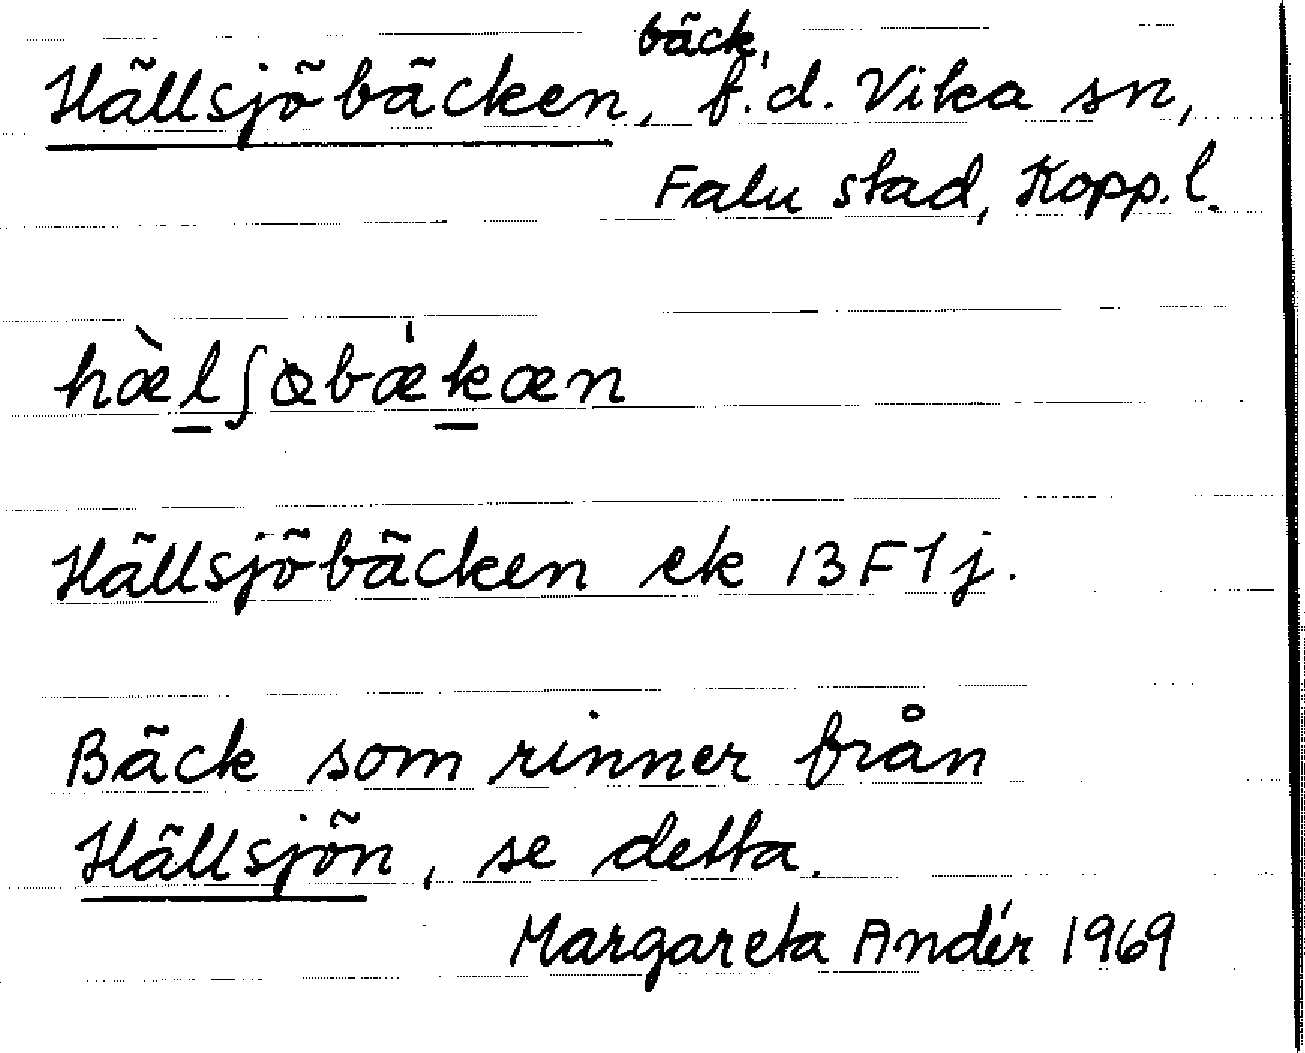 Hällsjöbäcken, bäck, f.d. Vika sn,
Falu stad, Kopp. l.
hæ̀l̲ʃɵbǽk̲æn
Hällsjöbäcken ek 13F1j.
Bäck som rinner från
Hällsjön, se detta.
Margareta Andér 1969